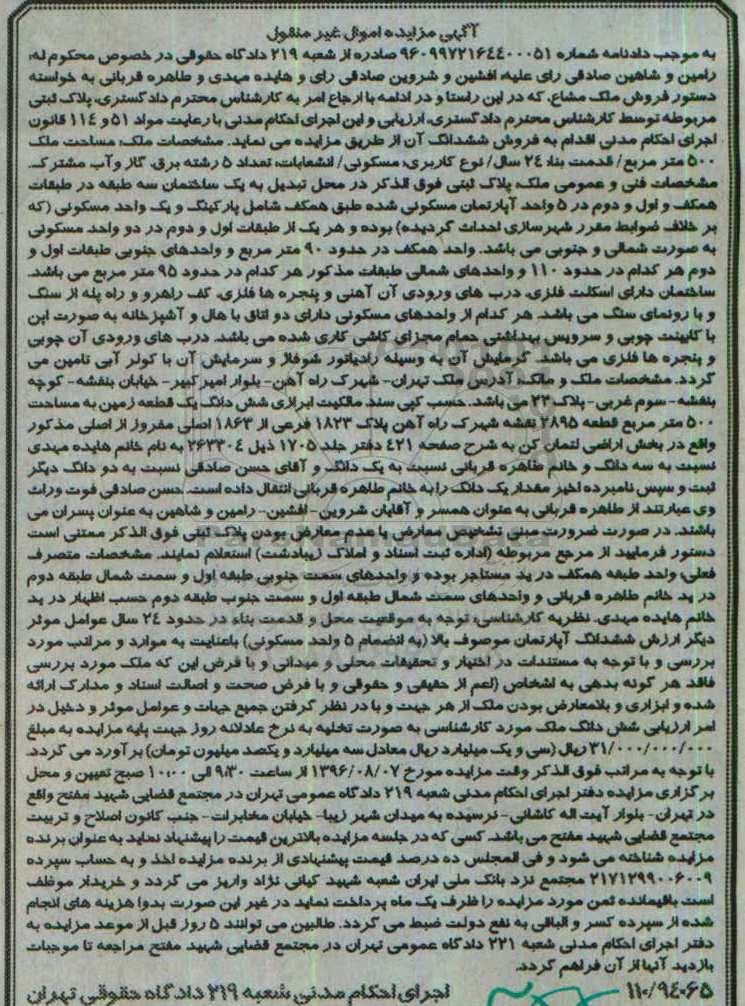 آگهی مزایده اموال غیر منقول
به موجب دادنامه شماره ۹۶۰۹۹۷۲۱۶۴۴۰۰۰۵۱ صادره از شعبه ۲۱۹ دادگاه حقوقی در خصوص محکوم له،
رامین و شاهین صادقی رای علیه، افشین و شروین صادقی رای و هایده مهدی و طاهره قربانی به خواسته
دستور فروش ملک مشاع، که در این راستا و در ادامه با ارجاع امر به کارشناس محترم دادگستری، پلاک ثبتی
مربوطه توسط کارشناس محترم دادگستری، ارزیابی و این اجرای احکام مدنی با رعایت مواد ۵۱ و ۱۱۴ قانون
اجرای احکام مدنی اقدام به فروش ششدانگ آن از طریق مزایده می نماید. مشخصات ملک، مساحت ملک
۵۰۰ متر مربع/ قدمت بنا، ۲۴ سال/ نوع کاربری، مسکونی/ انشعابات، تعداد ۵ رشته برق، گاز و آب مشترک.
مشخصات فنی و عمومی ملک، پلاک ثبتی فوق الذکر در محل تبدیل به یک ساختمان سه طبقه در طبقات
همکف و اول و دوم در ۵ واحد آپارتمان مسکونی شده طبق همکف شامل پارکینگ و یک واحد مسکونی (که
بر خلاف ضوابط مقرر شهرسازی احداث گردیده) بوده و هر یک از طبقات اول و دوم در دو واحد مسکونی
به صورت شمالی و جنوبی می باشد. واحد همکف در حدود ۹۰ متر مربع و واحدهای جنوبی طبقات اول و
دوم هر کدام در حدود ۱۱۰ و واحدهای شمالی طبقات مذکور هر کدام در حدود ۹۵ متر مربع می باشد.
ساختمان دارای اسکلت فلزی، درب های ورودی آن آهنی و پنجره ها فلزی، کف راهرو و راه پله از سنگ
و با رونمای سنگ می باشد. هر کدام از واحدهای مسکونی دارای دو اتاق با هال و آشپزخانه به صورت اپن
با کابینت چوبی و سرویس بهداشتی حمام مجزای کاشی کاری شده می باشد. درب های ورودی آن چوبی
و پنجره ها فلزی می باشد. گرمایش آن به وسیله رادیاتور شوفاژ و سرمایش آن با کولر آبی تامین می
گردد. مشخصات ملک و مالک، آدرس ملک تهران- شهرک راه آهن- بلوار امیرکبیر- خیابان بنفشه- کوچه
بنفشه- سوم غربی- پلاک ۲۳ می باشد. حسب کپی سند مالکیت ابرازی شش دانگ یک قطعه زمین به مساحت
۵۰۰ متر مربع قطعه ۲۸۹۵ نقشه شهرک راه آهن پلاک ۱۸۲۳ فرعی از ۱۸۶۳ اصلی مفروز از اصلی مذکور
واقع در بخش اراضی لتمان کن به شرح صفحه ۴۲۱ دفتر جلد ۱۷۰۵ ذیل ۲۶۳۳۰۴ به نام خانم هایده مهدی
نسبت به سه دانگ و خانم طاهره قربانی نسبت به یک دانگ و آقای حسن صادقی نسبت به دو دانگ دیگر
ثبت و سپس نامبرده اخیر مقدار یک دانگ را به خانم طاهره قربانی انتقال داده است. حسن صادقی فوت وراث
وی عبارتند از طاهره قربانی به عنوان همسر و آقایان شروین- افشین- رامین و شاهین به عنوان پسران می
باشند. در صورت ضرورت مبنی تشخیص معارض یا عدم معارض بودن پلاک ثبتی فوق الذکر معتنی است
دستور فرمایید از مرجع مربوطه (اداره ثبت اسناد و املاک زیبادشت) استعلام نمایند. مشخصات متصرف
فعلی، واحد طبقه همکف در ید مستاجر بوده و واحدهای سمت جنوبی طبقه اول و سمت شمال طبقه دوم
در ید خانم طاهره قربانی و واحدهای سمت شمال طبقه اول و سمت جنوب طبقه دوم حسب اظهار در ید
خانم هایده مهدی. نظریه کارشناسی، توجه به موقعیت محل و قدمت بناء در حدود ۲۴ سال عوامل موثر
دیگر ارزش ششدانگ آپارتمان موصوف بالا (به انضمام ۵ واحد مسکونی) باعنایت به موارد و مراتب مورد
بررسی و با توجه به مستندات در اختیار و تحقیقات محلی و میدانی و با فرض این که ملک مورد بررسی
فاقد هر گونه بدهی به اشخاص (اعم از حقیقی و حقوقی و با فرض صحت و اصالت اسناد و مدارک ارائه
شده و ابرازی و بلامعارض بودن ملک از هر جهت و با در نظر گرفتن جمیع جهات و عوامل موثر و دخیل در
امر ارزیابی شش دانگ ملک مورد کارشناسی به صورت تخلیه به نرخ عادلانه روز جهت پایه مزایده به مبلغ
۳۱/۰۰۰/۰۰۰/۰۰۰ ریال (سی و یک میلیارد ریال معادل سه میلیارد و یکصد میلیون تومان) برآورد می گردد.
با توجه به مراتب فوق الذکر وقت مزایده مورخ ۱۳۹۶/۰۸/۰۷ از ساعت ۹:۳۰ الی ۱۰:۰۰ صبح تعیین و محل
برگزاری مزایده دفتر اجرای احکام مدنی شعبه ۲۱۹ دادگاه عمومی تهران در مجتمع قضایی شهید مفتح واقع
در تهران- بلوار آیت اله کاشانی- نرسیده به میدان شهر زیبا- خیابان مخابرات- جنب کانون اصلاح و تربیت
مجتمع قضایی شهید مفتح می باشد. کسی که در جلسه مزایده بالاترین قیمت را پیشنهاد نماید به عنوان برنده
مزایده شناخته می شود و فی المجلس ده درصد قیمت پیشنهادی از برنده مزایده اخذ و به حساب سپرده
۲۱۷۱۲۹۹۰۰۶۰۰۹ مجتمع نزد بانک ملی ایران شعبه شهید کیانی نژاد واریز می گردد و خریدار موظف
است باقیمانده ثمن مورد مزایده را ظرف یک ماه پرداخت نماید در غیر این صورت بدوا هزینه های انجام
شده از سپرده کسر و الباقی به نفع دولت ضبط می گردد. طالبین می توانند ۵ روز قبل از موعد مزایده به
دفتر اجرای احکام مدنی شعبه ۲۲۱ دادگاه عمومی تهران در مجتمع قضایی شهید مفتح مراجعه تا موجبات
بازدید آنها از آن فراهم گردد.
۱۱۰/۹۴۰۶۵ اجرای احکام مدنی شعبه ۲۱۹ دادگاه حقوقی تهران